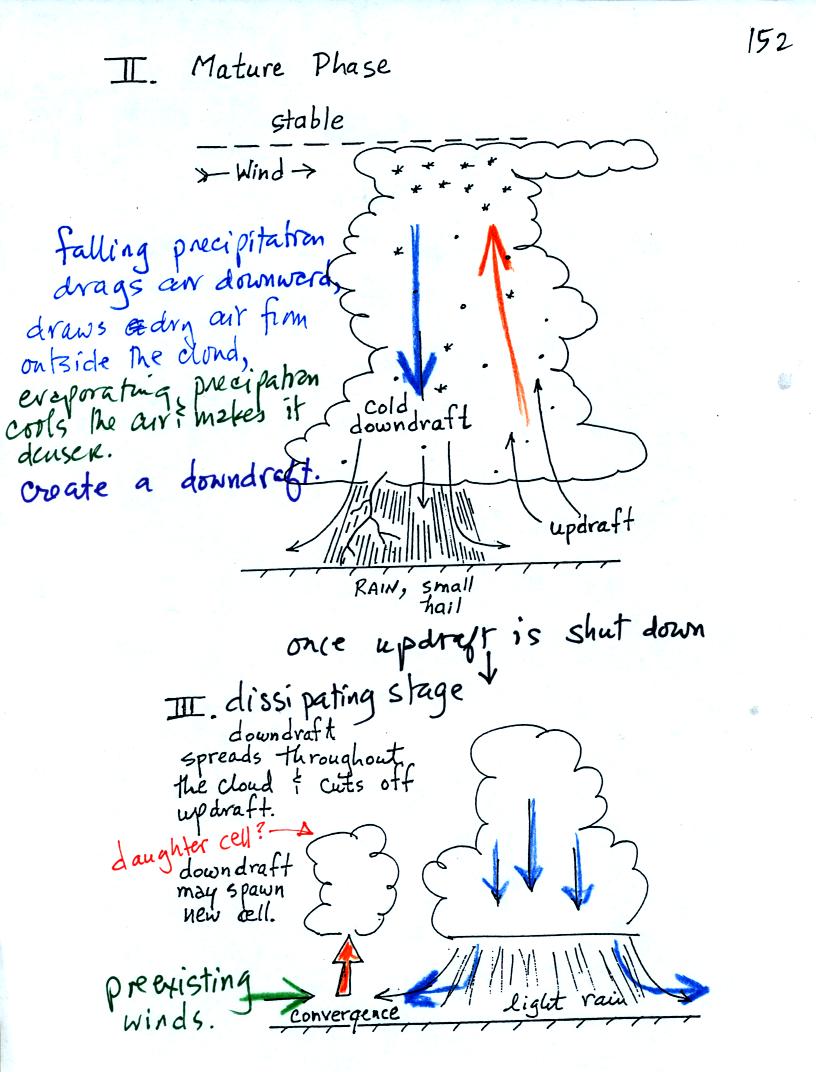 152
II. Mature Phase
stable
Wind
falling precipitation
drags air downward,
draws dry air from
outside the cloud,
evaporating precipation
cools the air & makes it
denser.
create a downdraft.
Cold
downdraft
updraft
RAIN, small
hail
once updraft is shut down
III. dissipating stage
downdraft
spreads throughout
the cloud & cuts off
updraft.
daughter cell?
downdraft
may spawn
new cell.
preexisting
winds.
convergence
light rain